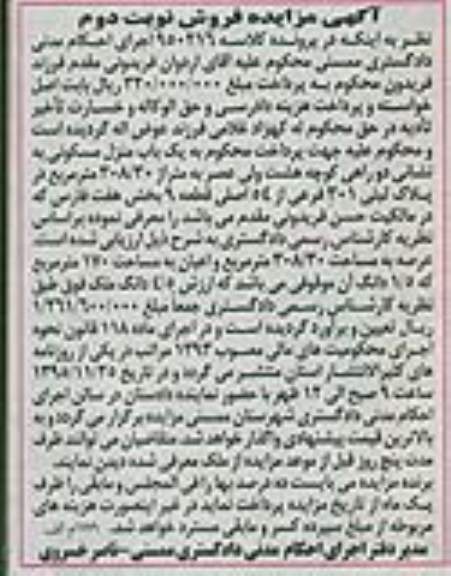 آگهی مزایده فروش نوبت دوم
نظر به اینکه در پرونده کلاسه ۹۵۰۲۱۶ اجرای احکام مدنی
دادگستری ممسنی محکوم علیه آقای اردوان فریدونی مقدم فرزند
فریدون محکوم به پرداخت مبلغ ۳۳۰/۰۰۰/۰۰۰ ریال بابت اصل
خواسته و پرداخت هزینه دادرسی و حق الوکاله و خسارت تأخیر
تأدیه در حق محکوم له کهزاد غلامی فرزند عوض اله گردیده است
و محکوم علیه جهت پرداخت محکوم به یک باب منزل مسکونی به
نشانی دو راهی کوچه هشت ولی عصر به متراژ ۳۰۸/۳۰ مترمربع در
پلاک ثبتی ۳۰۱ فرعی از ۵۴ اصلی قطعه ۹ بخش هفت فارس که
در مالکیت حسن فریدونی مقدم می باشد را معرفی نموده براساس
نظریه کارشناس رسمی دادگستری به شرح ذیل ارزیابی شده است.
عرصه به مساحت ۳۰۸/۳۰ مترمربع و اعیان به مساحت ۱۷۰ مترمربع
که ۱/۵ دانگ آن موقوفی می باشد که ارزش ۴/۵ دانگ ملک فوق طبق
نظریه کارشناس رسمی دادگستری جمعا مبلغ ۱/۲۶۱/۶۰۰/۰۰۰
ریال تعیین و برآورد گردیده است و در اجرای ماده ۱۱۸ قانون نحوه
اجرای محکومیت های مالی مصوب ۱۳۹۳ مراتب در یکی از روزنامه
های کثیرالانتشار استان منتشر می گردد و در تاریخ ۱۳۹۵/۱۱/۲۵
ساعت ۹ صبح الی ۱۲ ظهر با حضور نماینده دادستان در سالن اجرای
احکام مدنی دادگستری شهرستان ممسنی مزایده برگزار می گردد و به
بالاترین قیمت پیشنهادی واگذار خواهد شد. متقاضیان می توانند ظرف
مدت پنج روز قبل از موعد مزایده از ملک معرفی شده دیدن نمایند.
برنده مزایده می بایست ده درصد بها را فی المجلس و مابقی را ظرف
یک ماه از تاریخ مزایده پرداخت نماید در غیر اینصورت هزینه های
مربوطه از مبلغ سپرده کسر و مابقی مسترد خواهد شد.
مدیر دفتر اجرای احکام مدنی دادگستری ممسنی-ناصر خسروی